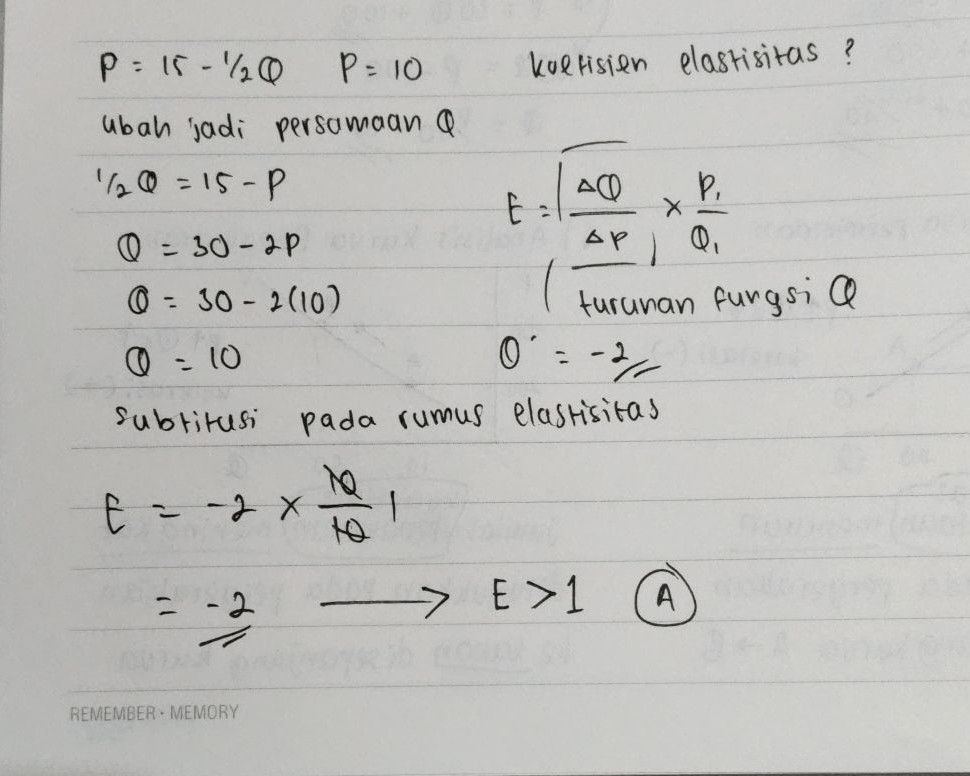 P = 15 - 1/2Q P = 10 koefisien elastisitas ?
ubah jadi persamaan Q
1/2Q = 15 - P
Q = 30 - 2P
Q = 30 - 2(10)
Q = 10
E = ΔQ/ΔP × P₁/Q₁
turunan fungsi Q
Q' = -2
Subtitusi pada rumus elastisitas
E = -2 × 10/10 1
= -2 → E > 1 A
REMEMBER • MEMORY